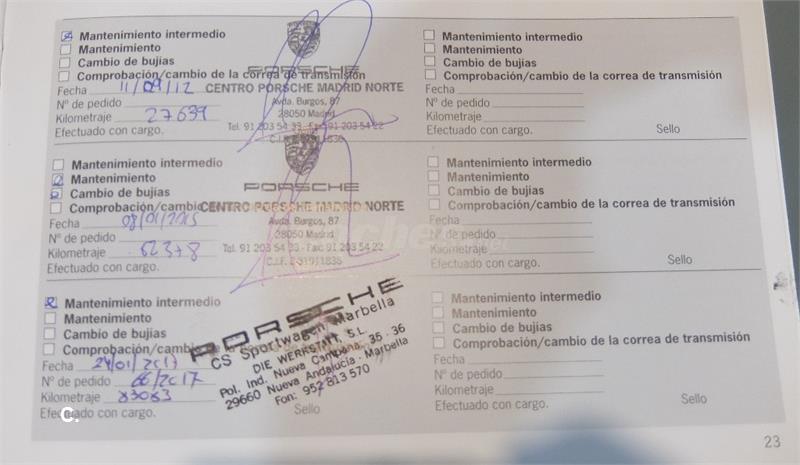 Mantenimiento intermedio
Mantenimiento
Cambio de bujías
Comprobación/cambio de la correa de transmisión
Fecha 11/09/12
Nº de pedido
Kilometraje 27639
Efectuado con cargo.
PORSCHE
CENTRO PORSCHE MADRID NORTE
Avda. Burgos, 87
28050 Madrid
Tel. 91 203 54 33 - Fax: 91 203 54 22
Mantenimiento intermedio
Mantenimiento
Cambio de bujías
Comprobación/cambio
Fecha
Nº de pedido
Kilometraje 62378
Efectuado con cargo.
PORSCHE
CENTRO PORSCHE MADRID NORTE
Avda. Burgos, 87
28050 Madrid
Tel. 91 203 54 33 - Fax: 91 203 54 22
Mantenimiento intermedio
Mantenimiento
Cambio de bujías
Comprobación/cambio
Fecha 24/01/2017
Nº de pedido 66/2017
Kilometraje 83083
Efectuado con cargo.
Sello
PORSCHE
CS Sportwagen Marbella
DIE WERKSTATT, S.L.
Pol. Ind. Nueva Campana, 35 - 36
29660 Nueva Andalucía - Marbella
Fon: 952 813 570
Mantenimiento intermedio
Mantenimiento
Cambio de bujías
Comprobación/cambio de la correa de transmisión
Fecha
Nº de pedido
Kilometraje
Efectuado con cargo.
Sello
Mantenimiento intermedio
Mantenimiento
Cambio de bujías
Comprobación/cambio de la correa de transmisión
Fecha
Nº de pedido
Kilometraje
Efectuado con cargo.
Sello
Mantenimiento intermedio
Mantenimiento
Cambio de bujías
Comprobación/cambio de la correa de transmisión
Fecha
Nº de pedido
Kilometraje
Efectuado con cargo.
Sello
23
C.